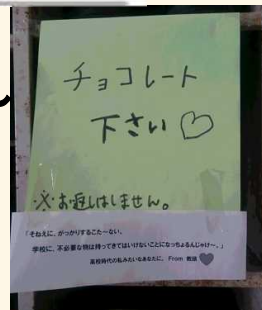 チョコレート
下さい♡
※お返しはしません。
「そねえに、がっかりするこた〜ない。
学校に、不必要な物は持ってきてはいけないことになっちょるんじゃけ〜。」
高校時代の私みたいなあなたに。 From